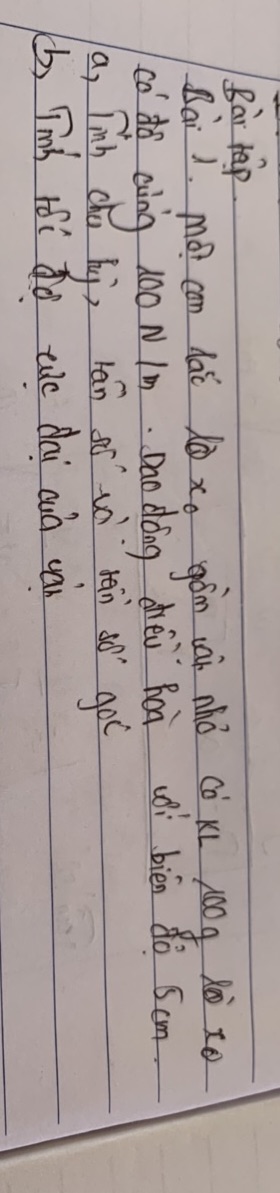 Bài tập.
Bài 1. Một con lắc lò xo gồm vật nhỏ có KL 100g lò xo
có độ cứng 100 N/m. Dao động điều hoà với biên độ 5cm.
a, Tính chu kỳ, tần số và tần số góc
b, Tính tốc độ cực đại của vật